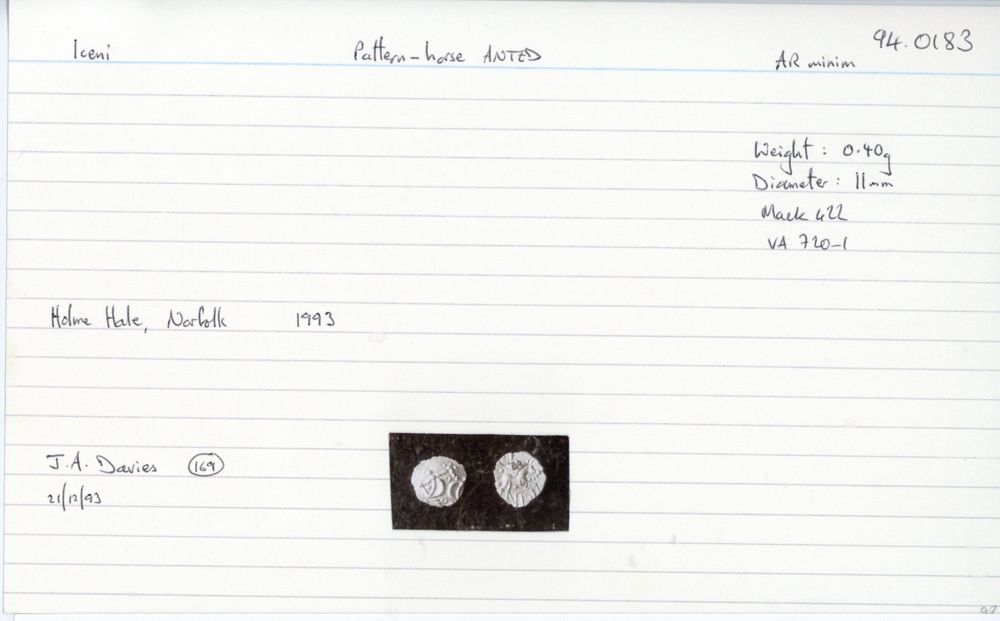 94.0183
Iceni Pattern-horse ANTED AR minim
Weight : 0.40g
Diameter : 11mm
Mack 422
VA 720-1
Holme Hale, Norfolk 1993
J.A. Davies 169
21/12/93